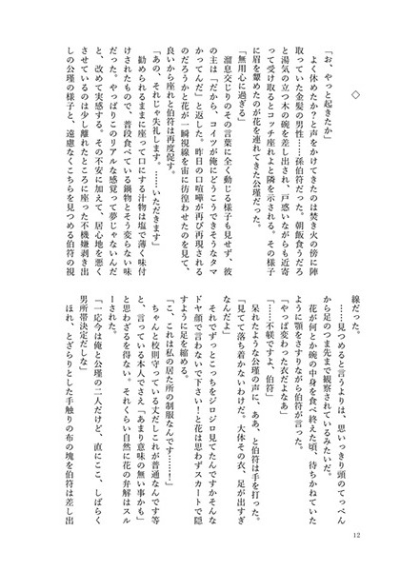 ◇
「お、やっと起きたか」
　よく休めたか？と声をかけてきたのは焚き火の傍に陣
取っていた金髪の男性……孫伯符だった。朝飯食うだろ
と湯気の立つ木の碗を差し出され、戸惑いながらも近寄
って受け取るとコッチ座れよと隣を示される。その様子
に眉を顰めたのが花を連れてきた公瑾だった。
「無用心に過ぎる」
　溜息交じりのその言葉に全く動じる様子も見せず、彼
の主は「だから、コイツが俺にどうこうできそうなタマ
かってんだ」と返した。昨日の口喧嘩が再び再現される
のだろうかと花が一瞬視線を宙に彷徨わせたのを見て、
良いから座れと伯符は再度促す。
「あの、それじゃ失礼します。……いただきます」
　勧められるままに座って口にする汁物は塩で薄く味付
けされたもので、普段食べている鍋物とそう変らない味
だった。やっぱりこのリアルな感覚って夢じゃないんだ
と、改めて実感する。その不安に加えて、居心地を悪く
させているのは少し離れたところに座った不機嫌剥き出
しの公瑾の様子と、遠慮なくこちらを見つめる伯符の視
線だった。
　……見つめると言うよりは、思いっきり頭のてっぺん
から足のつま先まで観察されているみたいだ。
　花が何とか碗の中身を食べ終えた頃、待ちかねていた
ように顎をさすりながら伯符が言った。
「やっぱ変わった衣だよなあ」
「……不躾ですよ、伯符」
　呆れたような公瑾の声に、ああ、と伯符は手を打った。
「見てて落ち着かないわけだ。大体その衣、足が出すぎ
なんだよ」
　それでずっとこっちをジロジロ見てたんですかそんな
ドヤ顔で言わないで下さい！と花は思わずスカートで隠
すように足を縮める。
「こ、これは私の居た所の制服なんです……！」
　ちゃんと校則守っている丈だしこれが普通なんです等
と、言っている本人でさえ「あまり意味の無い事かも」
と思わざるを得ない。それくらい自然に花の弁解はスル
ーされた。
「一応今は俺と公瑾の二人だけど、直にここ、しばらく
男所帯決定だしな」
　ほれ、とざらりとした手触りの布の塊を伯符は差し出
12